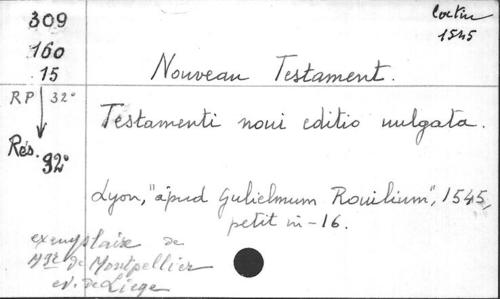 309
160
15
RP 32°
Rés. 32°
Coetin
1545
Nouveau Testament.
Testamenti noui editio uulgata.
Lyon, "apud Gulielmum Rouilium", 1545,
petit in-16.
exemplaire de
Mgr de Montpellier
ev. de Liège